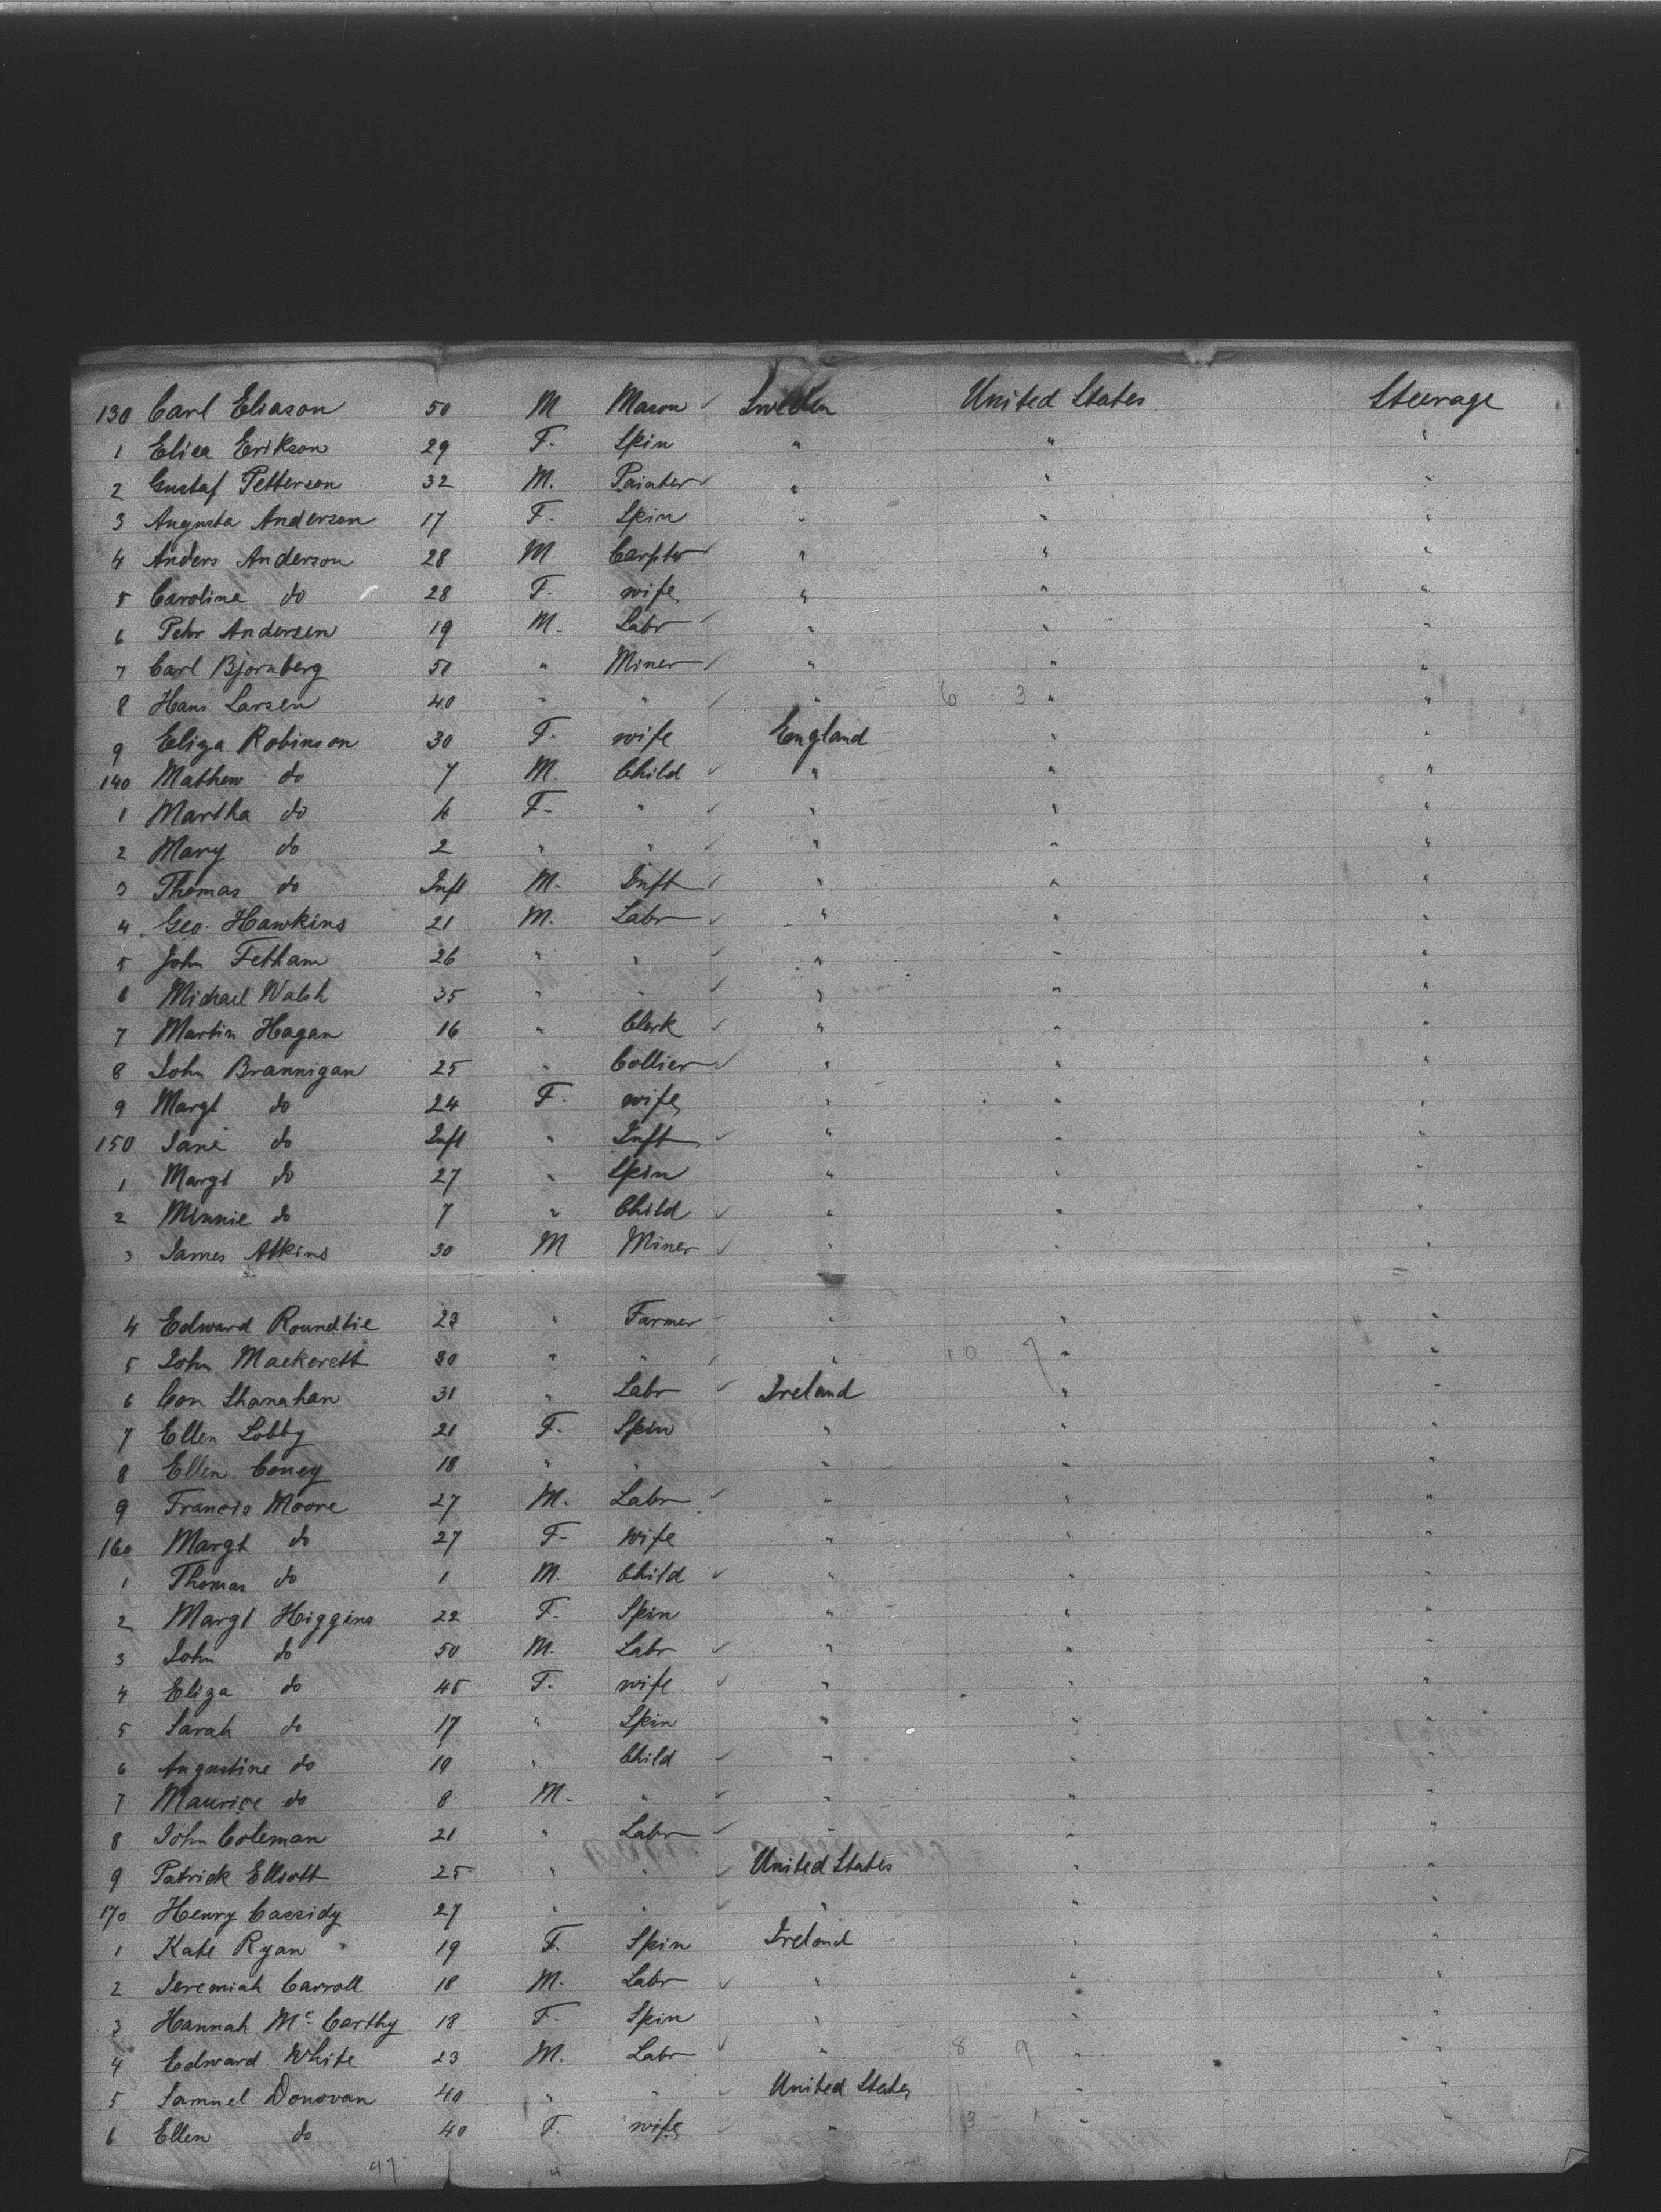 130 Carl Eliason 50 M Mason ✓ Sweden United States Steerage
1 Elisa Erikson 29 F. Spin " " "
2 Gustaf Petterson 32 M. Painter ✓ " " "
3 Augusta Anderson 17 F. Spin " " "
4 Anders Anderson 28 M Carpter ✓ " " "
5 Carolina do 28 F. wife " " "
6 Pehr Andersen 19 M. Labr ✓ " " "
7 Carl Bjornberg 50 " Miner ✓ " " "
8 Hans Larsen 40 " " ✓ " 6 3 " "
9 Eliza Robinson 30 F. wife England " "
140 Mathew do 7 M. Child ✓ " " "
1 Martha do 4 F. " ✓ " " "
2 Mary do 2 " " ✓ " " "
3 Thomas do Inft M. Inft ✓ " " "
4 Geo. Hawkins 21 M. Labr ✓ " " "
5 John Fetham 26 " " ✓ " " "
6 Michael Walsh 35 " " ✓ " " "
7 Martin Hagan 16 " Clerk ✓ " " "
8 John Brannigan 25 " Collier ✓ " " "
9 Margt do 24 F. wife " " "
150 Jane do Inft " Inft ✓ " " "
1 Margt do 27 " Spin " " "
2 Minnie do 7 " Child ✓ " " "
3 James Atkins 30 M Miner ✓ " " "
4 Edward Roundtie 23 " Farmer " " "
5 John Mackerett 30 " " ✓ " 10 7 " "
6 Con Shanahan 31 " Labr ✓ Ireland " "
7 Ellen Lobby 21 F. Spin " " "
8 Ellen Coney 18 " " " " "
9 Francis Moore 27 M. Labr ✓ " " "
160 Margt do 27 F. wife " " "
1 Thomas do 1 M. Child ✓ " " "
2 Margt Higgins 22 F. Spin " " "
3 John do 50 M. Labr ✓ " " "
4 Eliza do 45 F. wife ✓ " " "
5 Sarah do 17 " Spin " " "
6 Augustine do 10 " Child ✓ " " "
7 Maurice do 8 M. " ✓ " " "
8 John Coleman 21 " Labr ✓ " " "
9 Patrick Elliott 25 " " ✓ United States " "
170 Henry Cassidy 27 " " ✓ " " "
1 Kate Ryan 19 F. Spin Ireland " "
2 Jeremiah Carroll 18 M. Labr ✓ " " "
3 Hannah Mc. Carthy 18 F. Spin " " "
4 Edward White 23 M. Labr ✓ " 8 9 " "
5 Samuel Donovan 40 " " ✓ United States " "
6 Ellen do 40 F. wife " 3 1 "
47